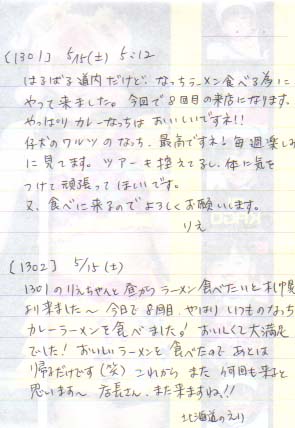 [1301] 5/15(土) 5:12
はるばる道内だけど、なっちラーメン食べる為に
やって来ました。今回で8回目の来店になります。
やっぱりカレーなっちはおいしいですネ!!
仔犬のワルツのなっち、最高ですネ!毎週楽しみ
に見てます。ツアーも控えてるし、体に気を
つけて頑張ってほしいです。
又、食べに来るのでよろしくお願いします。
りえ
[1302] 5/15(土)
1301のりえちゃんと昼からラーメン食べたいと札幌
より来ました〜 今日で8回目、やはりいつものなっち
カレーラーメンを食べました。おいしくて大満足
でした!おいしいラーメンを食べたのであとは
帰るだけです(笑)これからまた何回も来ると
思います〜 店長さん、また来ますね!!
北海道のえり